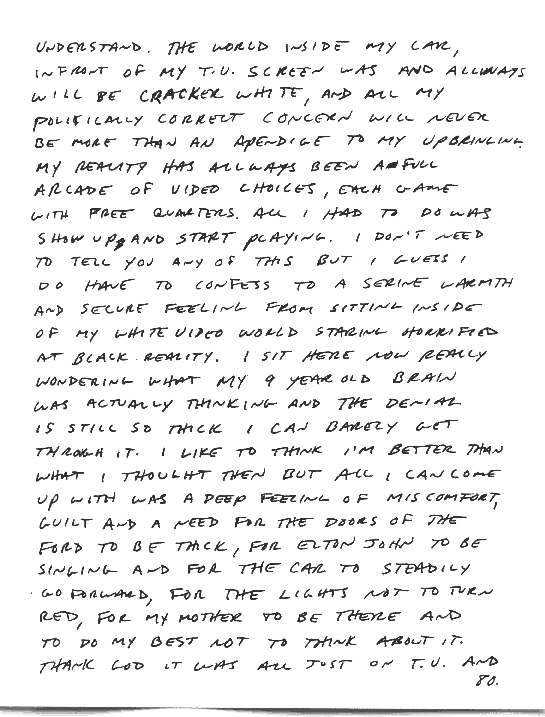 UNDERSTAND. THE WORLD INSIDE MY CAR,
INFRONT OF MY T.V. SCREEN WAS AND ALLWAYS
WILL BE CRACKER WHITE, AND ALL MY
POLITICALLY CORRECT CONCERN WILL NEVER
BE MORE THAN AN APENDIGE TO MY UPBRINGING.
MY REALITY HAS ALLWAYS BEEN A FULL
ARCADE OF VIDEO CHOICES, EACH GAME
WITH FREE QUARTERS. ALL I HAD TO DO WAS
SHOW UP, AND START PLAYING. I DON'T NEED
TO TELL YOU ANY OF THIS BUT I GUESS I
DO HAVE TO CONFESS TO A SERINE WARMTH
AND SECURE FEELING FROM SITTING INSIDE
OF MY WHITE VIDEO WORLD STARING HORRIFIED
AT BLACK REALITY. I SIT HERE NOW REALLY
WONDERING WHAT MY 9 YEAR OLD BRAIN
WAS ACTUALLY THINKING AND THE DENIAL
IS STILL SO THICK I CAN BARELY GET
THROUGH IT. I LIKE TO THINK I'M BETTER THAN
WHAT I THOUGHT THEN BUT ALL I CAN COME
UP WITH WAS A DEEP FEELING OF MISCOMFORT,
GUILT AND A NEED FOR THE DOORS OF THE
FORD TO BE THICK, FOR ELTON JOHN TO BE
SINGING AND FOR THE CAR TO STEADILY
GO FORWARD, FOR THE LIGHTS NOT TO TURN
RED, FOR MY MOTHER TO BE THERE AND
TO DO MY BEST NOT TO THINK ABOUT IT.
THANK GOD IT WAS ALL JUST ON T.V. AND
80.